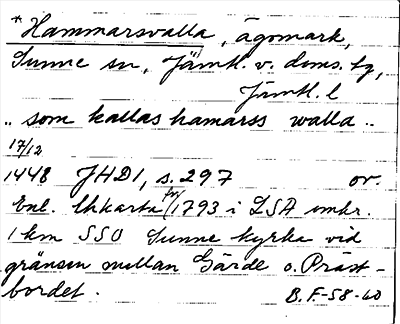 * Hammarsvalla, ägomark,
Sunne sn, Jämtl. v. doms. tg,
Jämtl. l
.. som kallas hamarss walla ..
17/12
1448 JHD1, s. 297 or.
Enl. lhkarta 1793 i LSA omkr.
1 km SSO Sunne kyrka vid
gränsen mellan Gärde o. Präst-
bordet. B.F-58-40